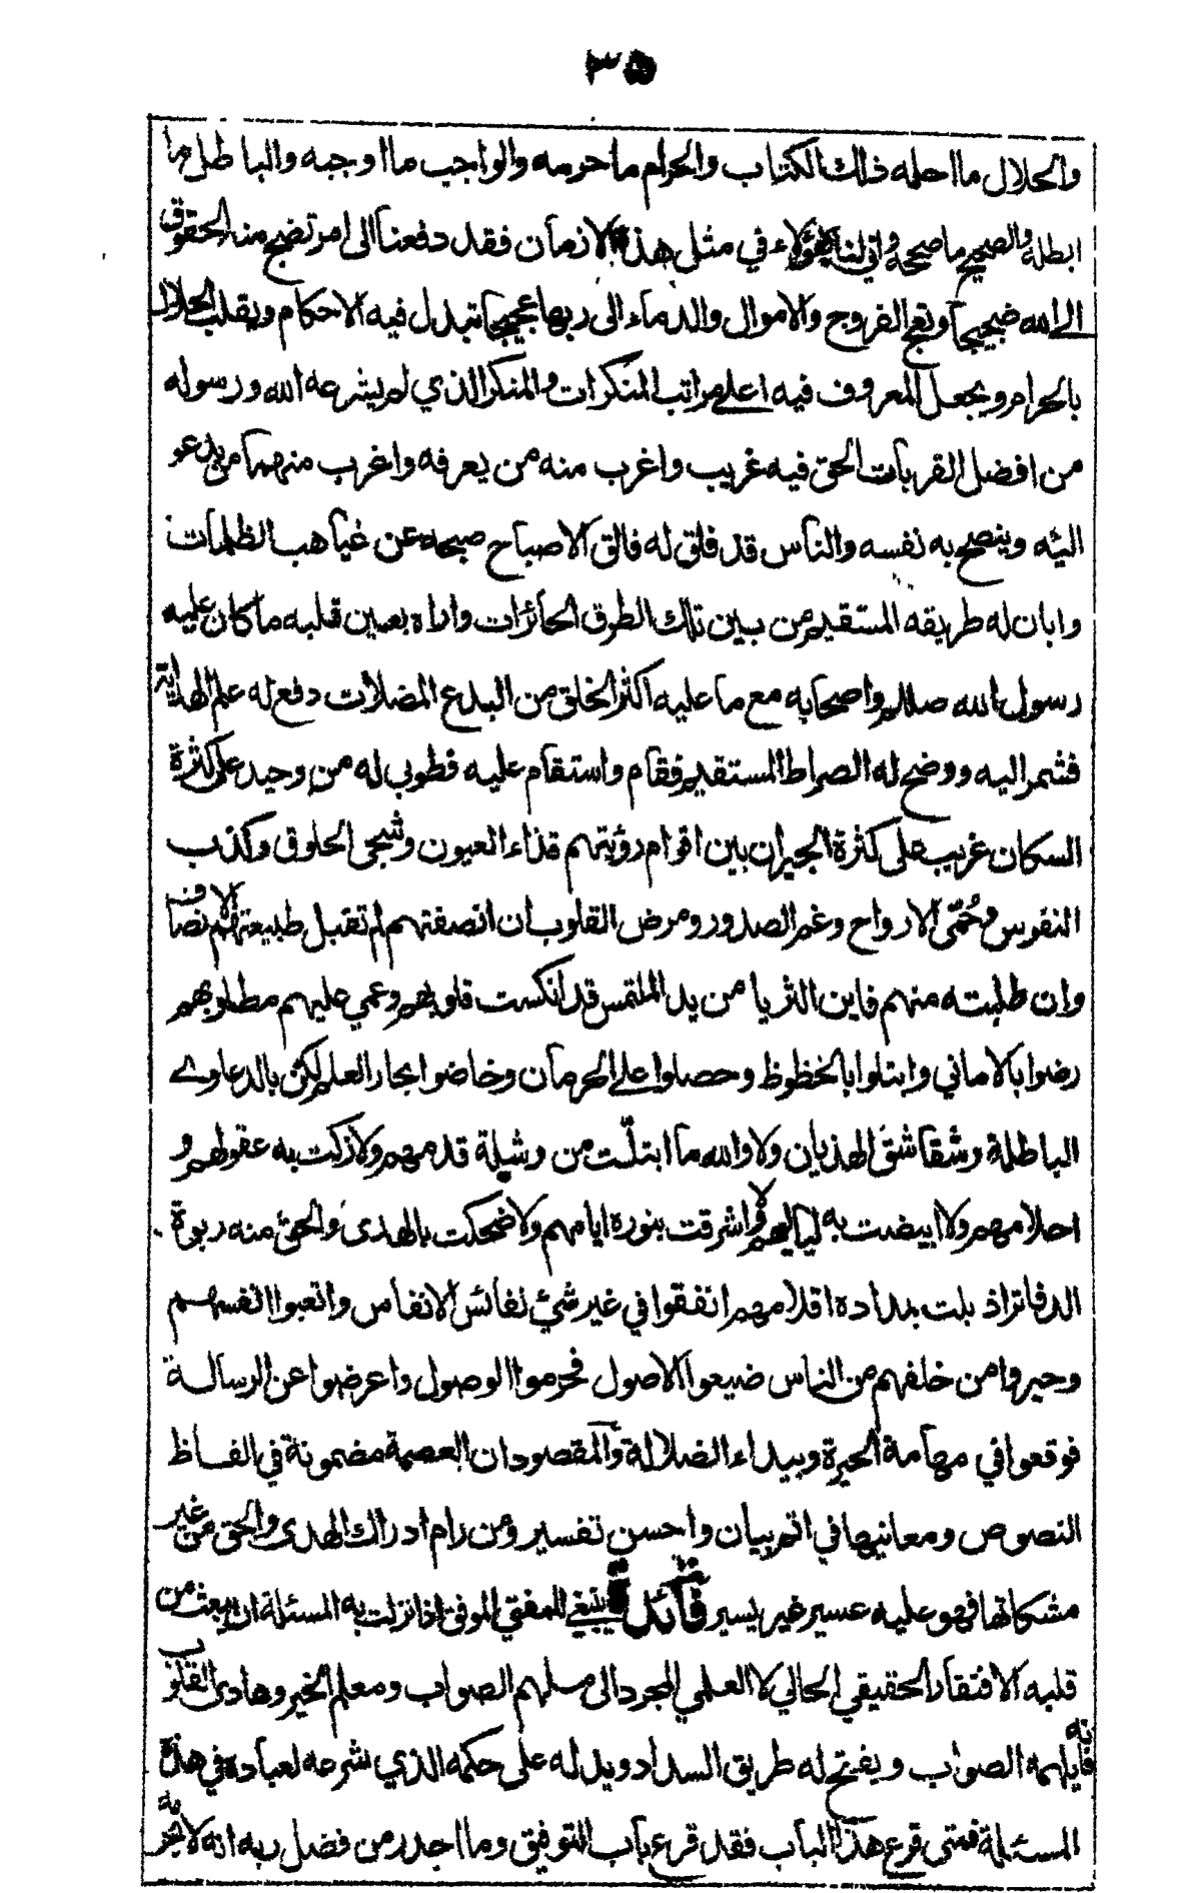 ٣٥
والحلال ما احله ذلك الكتاب والحرام ما حرمه والواجب ما اوجبه والباطل ما
ابطله والصحيح ما صححه واني لنا بهؤلاء في مثل هذه الازمان فقد دفعنا الى امر تضج منه الحقوق
الى الله ضجيجا وتعج الفروج والاموال والدماء الى ربها عجيجا تبدل فيه الاحكام ويقلب الحلال
بالحرام ويجعل المعروف فيه اعلى مراتب المنكرات والمنكر الذي لم يشرعه الله ورسوله
من افضل القربات الحق فيه غريب واغرب منه من يعرفه واغرب منهما من يدعو
اليه وينصح به نفسه والناس قد فلق له فالق الاصباح صبحه عن غياهب الظلمات
وابان له طريقه المستقيم من بين تلك الطرق الجائرات واراه بعين قلبه ما كان عليه
رسول الله صللم واصحابه مع ما عليه اكثر الخلق من البدع المضلات دفع له علم الهداية
فشمر اليه ووضح له الصراط المستقيم فقام واستقام عليه فطوبى له من وحيد على كثرة
السكان غريب على كثرة الجيران بين اقوام رؤيتهم قذاء العيون وشجى الحلوق وكذب
النفوس وحُمّى الارواح وغم الصدور ومرض القلوب ان انصفتهم لم تقبل طبيعتهم الانصاف
وان طلبته منهم فاين الثريا من يد الملتمس قد انكست قلوبهم وعمي عليهم مطلوبهم
رضوا بالاماني وابتلوا بالحظوظ وحصلوا على الحرمان وخاضوا بحار العلم لكن بالدعاوى
الباطلة وشقاشق الهذيان ولا والله ما ابتلّت من وشيلة قدمهم ولا زكت به عقولهم و
احلامهم ولا ابيضت به لياليهم ولا اشرقت بنوره ايامهم ولا ضحكت بالهدى والحق منه ربوة
الدفاتر اذ بلت بمداده اقلامهم انفقوا في غير شئ نفائس الانفاس واتعبوا انفسهم
وحيروا من خلفهم من الناس ضيعوا الاصول فحرموا الوصول واعرضوا عن الرسالة
فوقعوا في مهامة الحيرة وبيداء الضلالة والمقصود ان العصمة مضمونة في الفاظ
النصوص ومعانيها في اتم بيان واحسن تفسير ومن رام ادراك الهدى والحق من غير
مشكاتها فهو عليه عسير غير يسير فائدة ينبغي للمفتي الموفق اذا نزلت به المسئلة ان يبعث من
قلبه الافتقار الحقيقي الحالي لا العلمي المجرد الى ملهم الصواب ومعلم الخير وهادى القلوب
فانه يلهمه الصواب ويفتح له طريق السداد ويدله على حكمه الذي شرعه لعباده في هذه
المسئلة فمتى قرع هذا الباب فقد قرع باب التوفيق وما اجدر من فضل ربه انه لا يحرمه